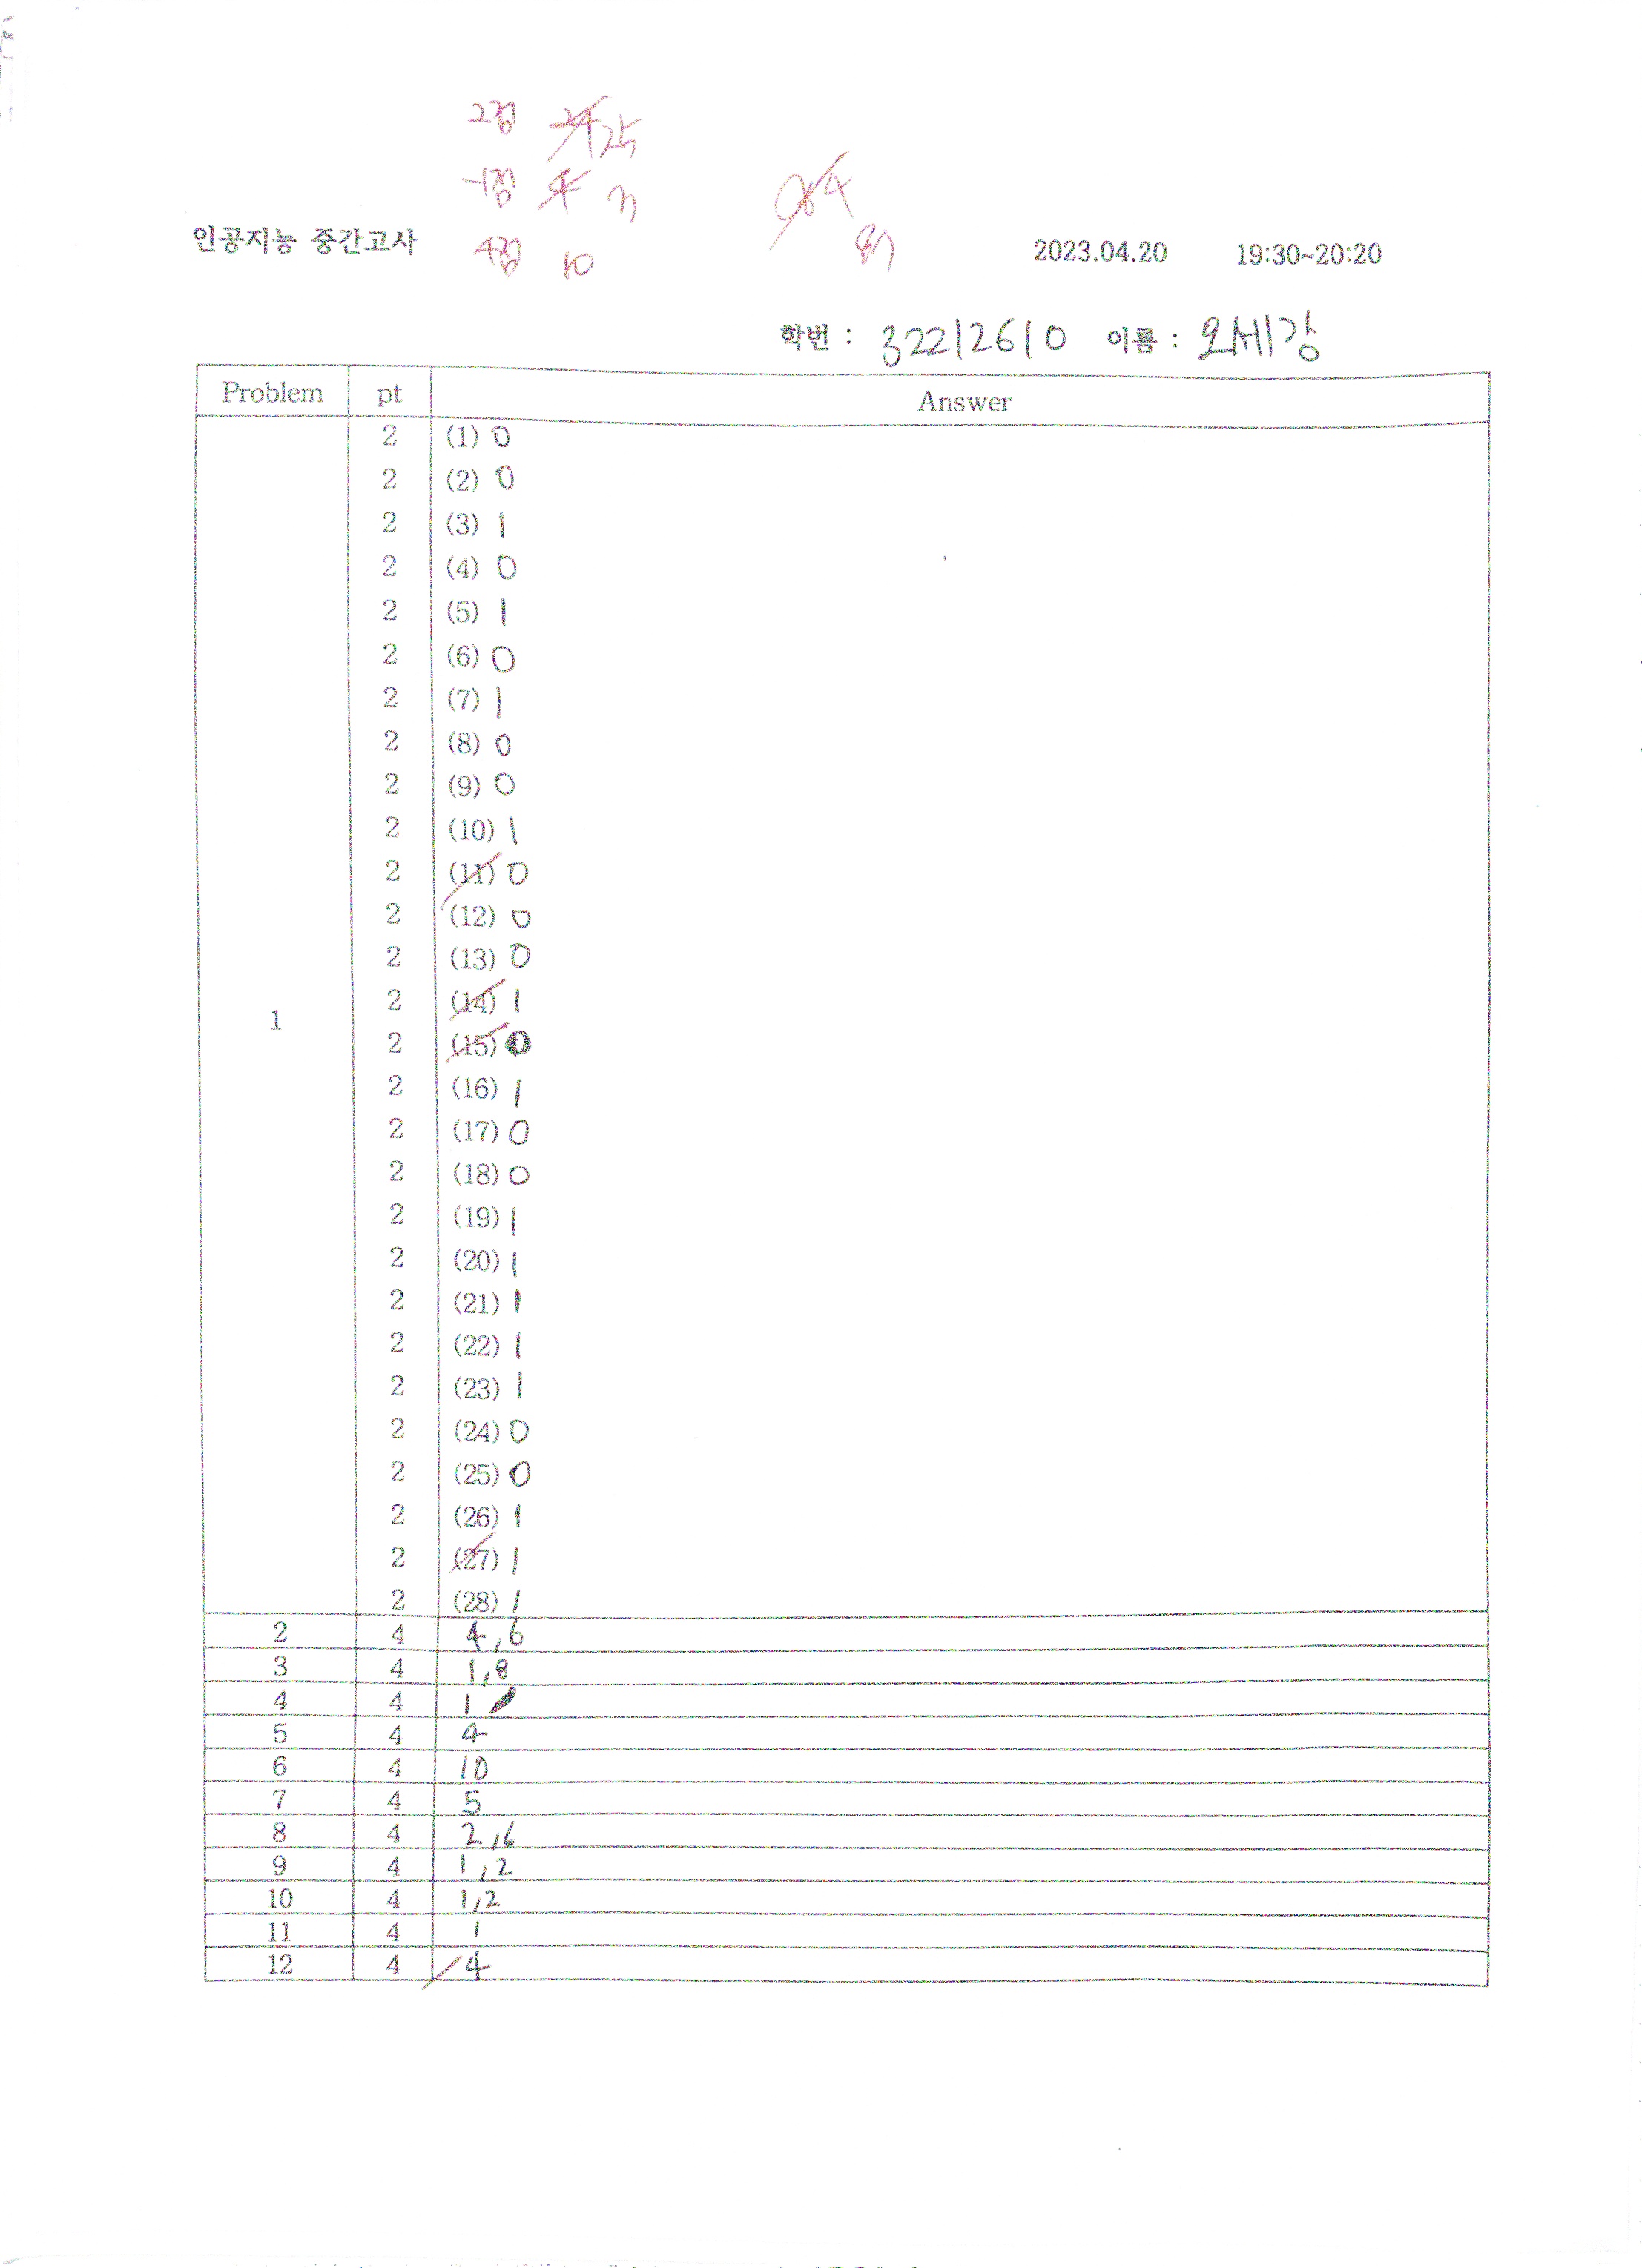 2점 24 25
-1점 4 3
4점 10
84
87
인공지능 중간고사
2023.04.20 19:30~20:20
학번 : 32212610 이름 : 오세강
Problem pt Answer
2 (1) 0
2 (2) 0
2 (3) 1
2 (4) 0
2 (5) 1
2 (6) 0
2 (7) 1
2 (8) 0
2 (9) 0
2 (10) 1
2 (11) 0
2 (12) 0
2 (13) 0
1 2 (14) 1
2 (15)
2 (16) 1
2 (17) 0
2 (18) 0
2 (19) 1
2 (20) 1
2 (21) 1
2 (22) 1
2 (23) 1
2 (24) 0
2 (25) 0
2 (26) 1
2 (27) 1
2 (28) 1
2 4 4,6
3 4 1,8
4 4 1
5 4 4
6 4 10
7 4 5
8 4 2,6
9 4 1,2
10 4 1,2
11 4 1
12 4 4